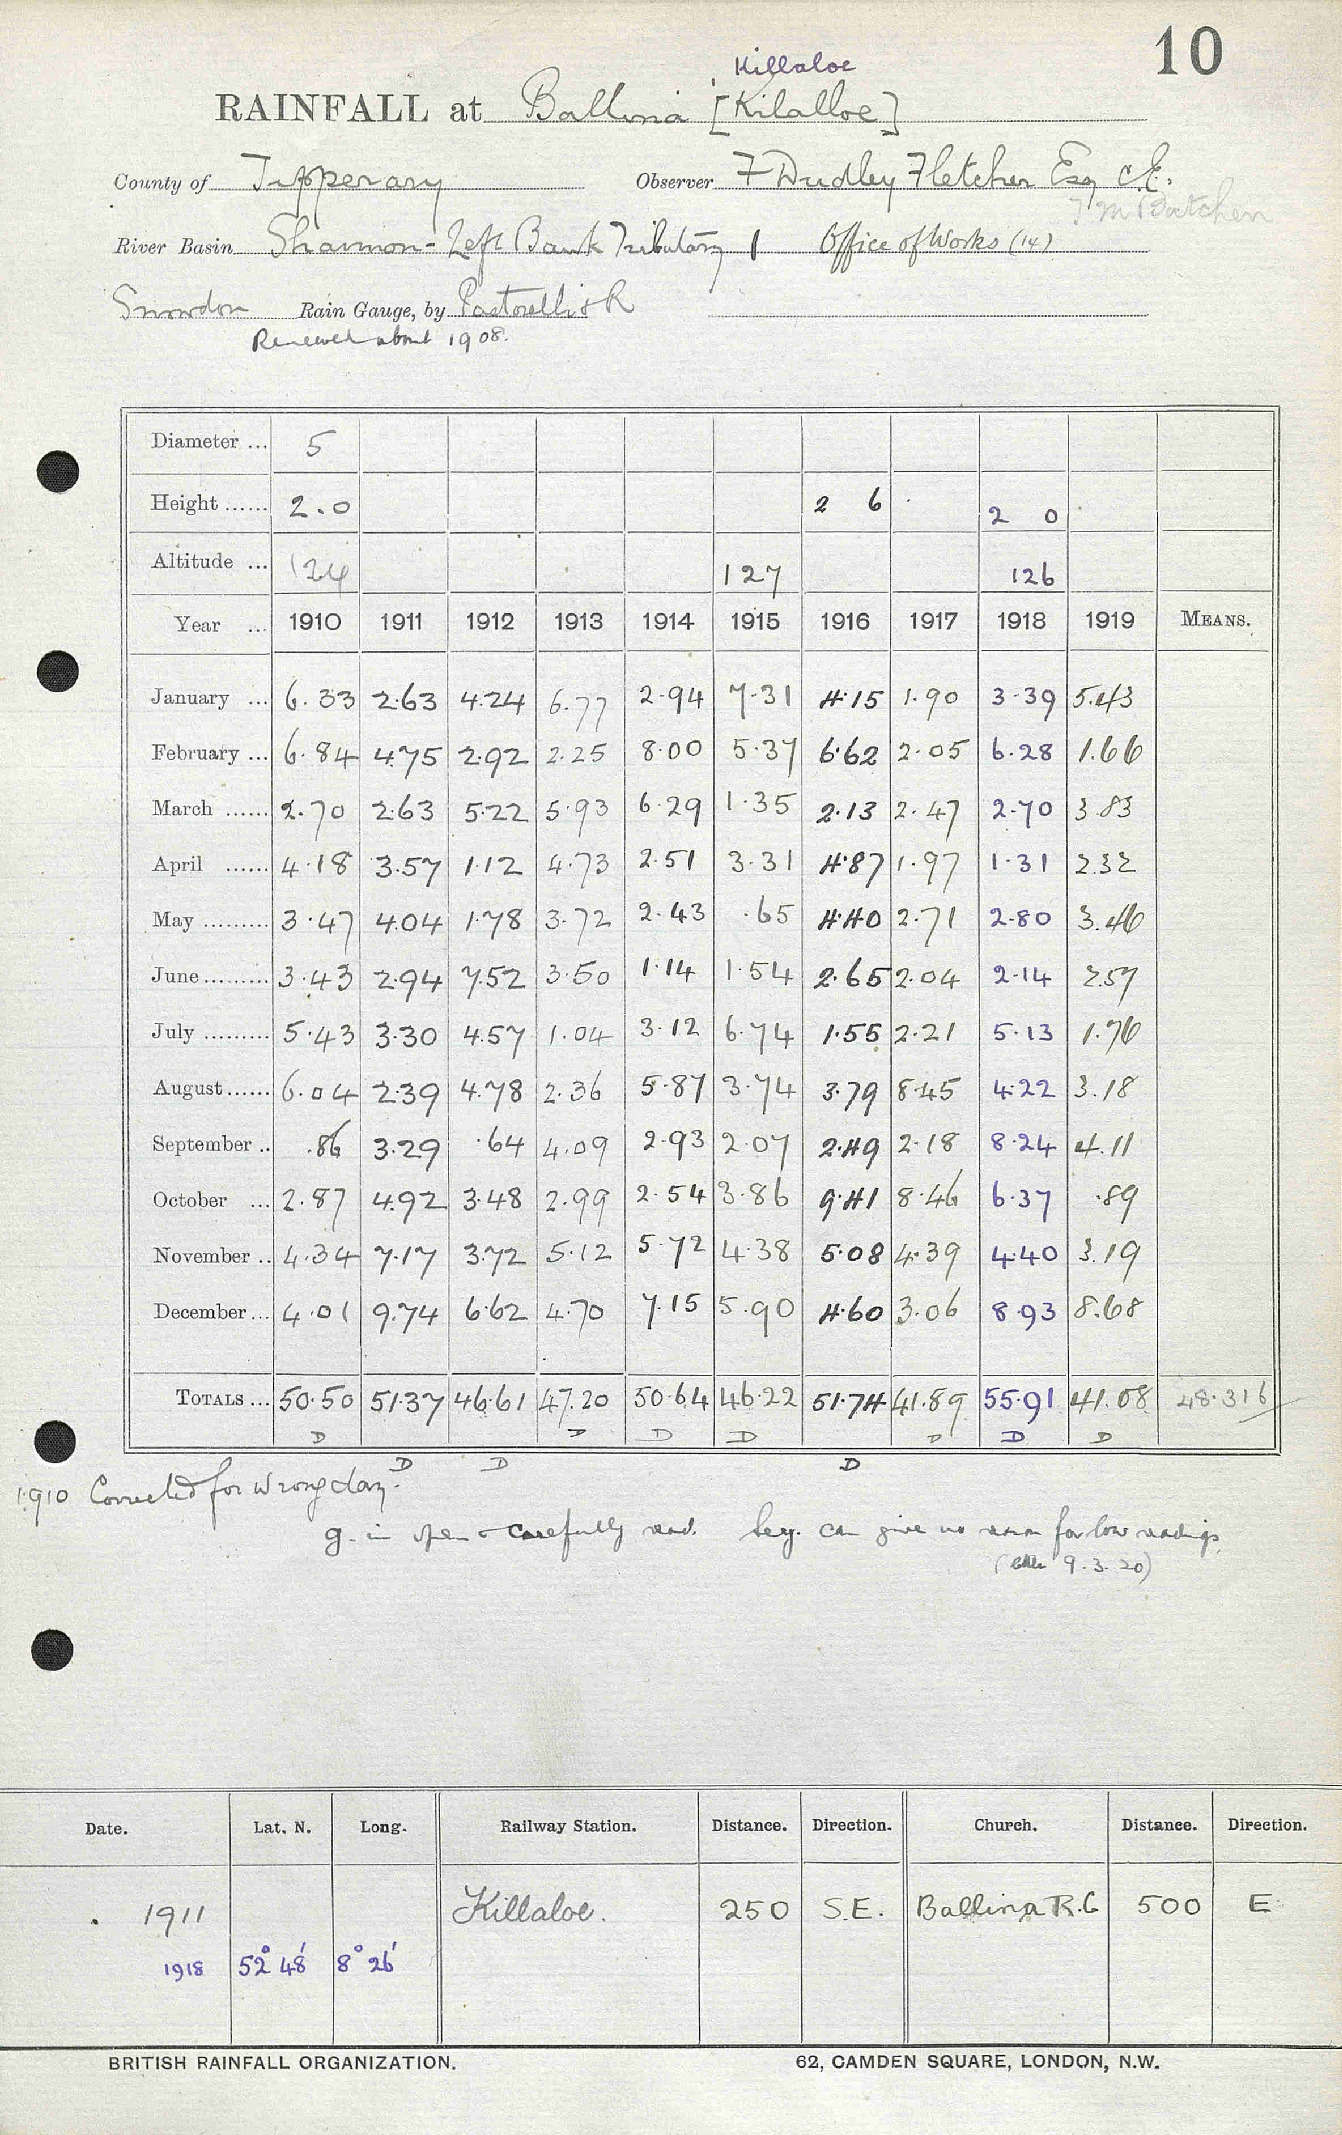 10
Killaloe
RAINFALL at Ballina [Kilalloe]
County of Tipperary Observer F Dudley Fletcher Esq C.E.
River Basin Shannon - Left Bank Tributary 1 Office of Works (14)
Snowdon Rain Gauge, by Pastorelli & R
Renewed about 1908.
Diameter ... 5
Height ...... 2.0 2 6 2 0
Altitude ... 124 127 126
Year ... 1910 1911 1912 1913 1914 1915 1916 1917 1918 1919 MEANS.
January ... 6.33 2.63 4.24 6.77 2.94 7.31 4.15 1.90 3.39 5.43
February ... 6.84 4.75 2.92 2.25 8.00 5.37 6.62 2.05 6.28 1.66
March ...... 2.70 2.63 5.22 5.93 6.29 1.35 2.13 2.47 2.70 3.83
April ...... 4.18 3.57 1.12 4.73 2.51 3.31 4.87 1.97 1.31 2.32
May ......... 3.47 4.04 1.78 3.72 2.43 .65 4.40 2.71 2.80 3.46
June......... 3.43 2.94 7.52 3.50 1.14 1.54 2.65 2.04 2.14 2.57
July ......... 5.43 3.30 4.57 1.04 3.12 6.74 1.55 2.21 5.13 1.76
August...... 6.04 2.39 4.78 2.36 5.87 3.74 3.79 8.45 4.22 3.18
September .. .86 3.29 .64 4.09 2.93 2.07 2.49 2.18 8.24 4.11
October ... 2.87 4.92 3.48 2.99 2.54 3.86 9.41 8.46 6.37 .89
November .. 4.34 7.17 3.72 5.12 5.72 4.38 5.08 4.39 4.40 3.19
December ... 4.01 9.74 6.62 4.70 7.15 5.90 4.60 3.06 8.93 8.68
TOTALS ... 50.50 51.37 46.61 47.20 50.64 46.22 51.74 41.89 55.91 41.08 48.316
D D D D D D D
D D D
1910 Corrected for wrong day.
g. in open & carefully read. They can give no reason for low readings
9.3.20)
Date. Lat. N. Long. Railway Station. Distance. Direction. Church. Distance. Direction.
1911 Killaloe. 250 S.E. Ballina R.C 500 E
1918 52° 48' 8° 26'
BRITISH RAINFALL ORGANIZATION. 62, CAMDEN SQUARE, LONDON, N.W.